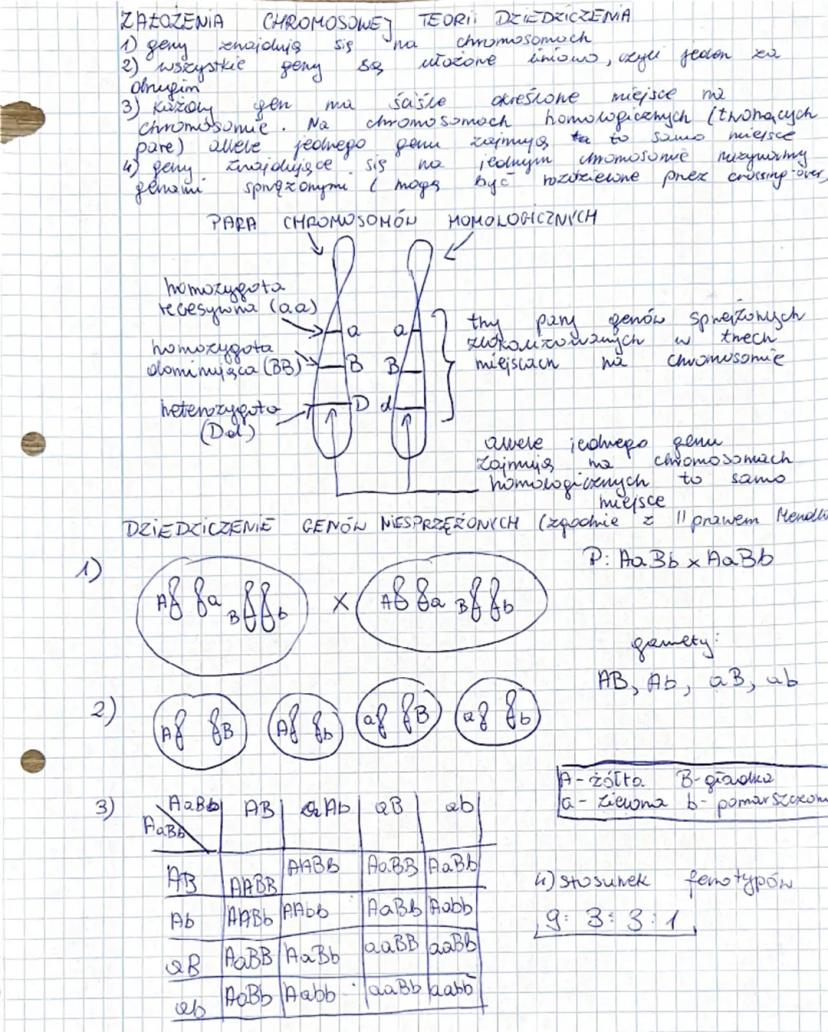 ZAŁOŻENIA CHROMOSOWEJ TEORII DZIEDZICZENIA
1) geny znajdują się na chromosomach
2) wszystkie geny są ułożone liniowo, czyli jeden za
drugim
3) każdy gen ma ściśle określone miejsce na
chromosomie. Na chromosomach homologicznych (tworzących
parę) allele jednego genu zajmują to samo miejsce
4) geny znajdujące się na jednym chromosomie nazywamy
genami sprzężonymi (mogą być rozdzielone przez crossing-over)
PARA CHROMOSOMÓW HOMOLOGICZNYCH
homozygota
recesywna (aa)
a
a
homozygota
dominująca (BB)
B
B
heterozygota
(Dd)
D
d
trzy pary genów sprzężonych
zlokalizowanych w trzech
miejscach na chromosomie
allele jednego genu
zajmują na chromosomach
homologicznych to samo
miejsce
DZIEDZICZENIE GENÓW NIESPRZĘŻONYCH (zgodnie z II prawem Mendla
1)
A a B b x A a B b
P: AaBb x AaBb
gamety:
AB, Ab, aB, ab
2)
A B A b a B a b
A - żółta B - gładka
a - zielona b - pomarszczona
3)
AaBb AB Ab aB ab
AaBb
AB AABB AABb AaBB AaBb
Ab AABb AAbb AaBb Aabb
aB AaBB AaBb aaBB aaBb
ab AaBb Aabb aaBb aabb
4) stosunek fenotypów
9 : 3 : 3 : 1